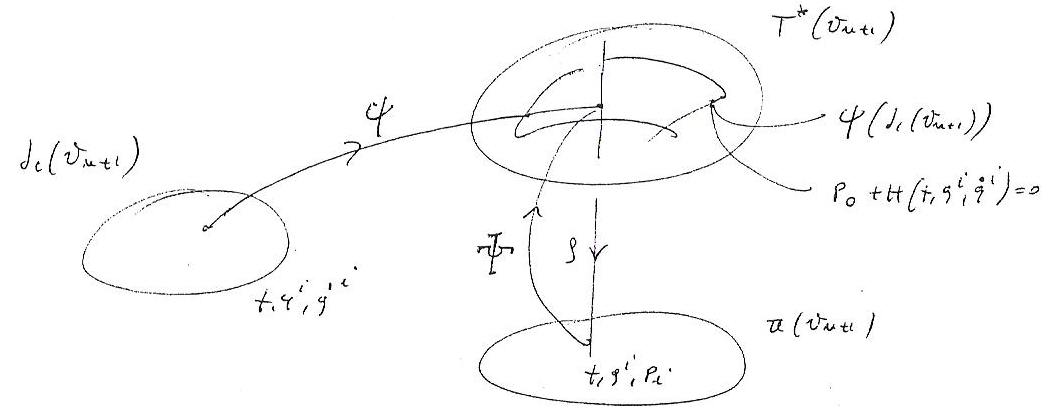 T*(𝒱ₙ₊₁)
ψ
ψ(j₁(𝒱ₙ₊₁))
j₁(𝒱ₙ₊₁)
P₀ + H(t, qⁱ, q̇ⁱ) = 0
Ψ
ρ
t, qⁱ, q̇ⁱ
π(𝒱ₙ₊₁)
t, qⁱ, Pᵢ